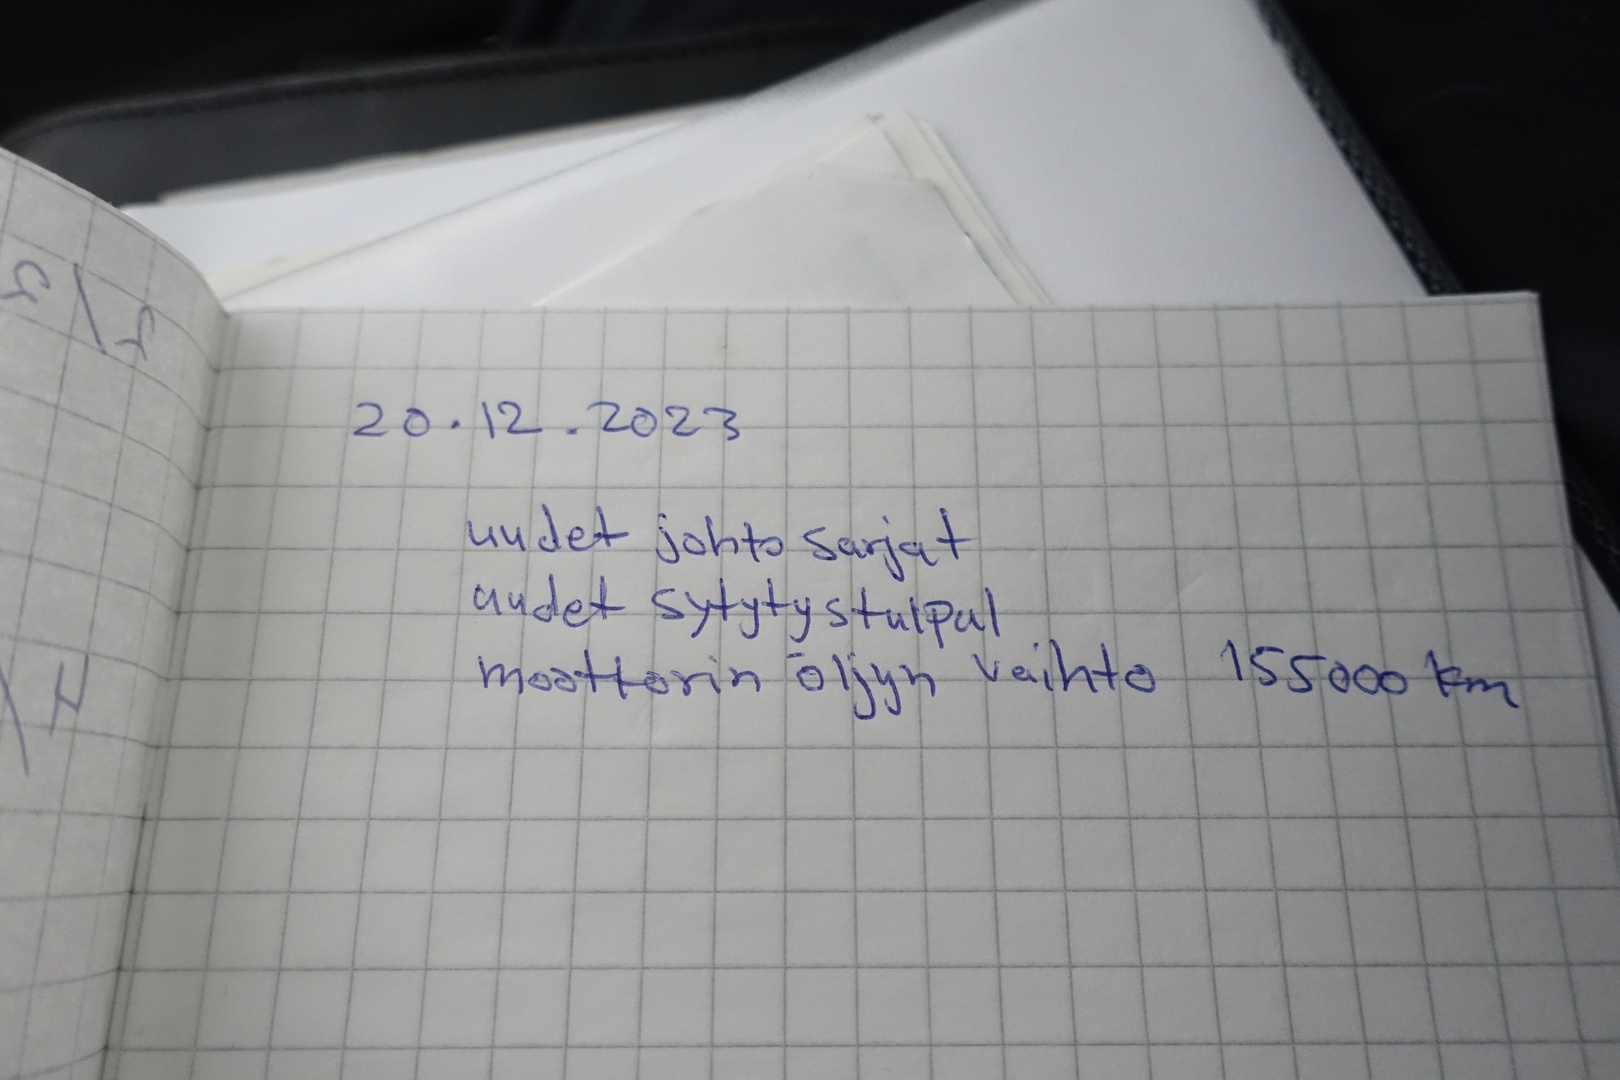 20.12.2023
uudet johto sarjat
uudet sytytystulpat
moottorin öljyn vaihto 155000 km